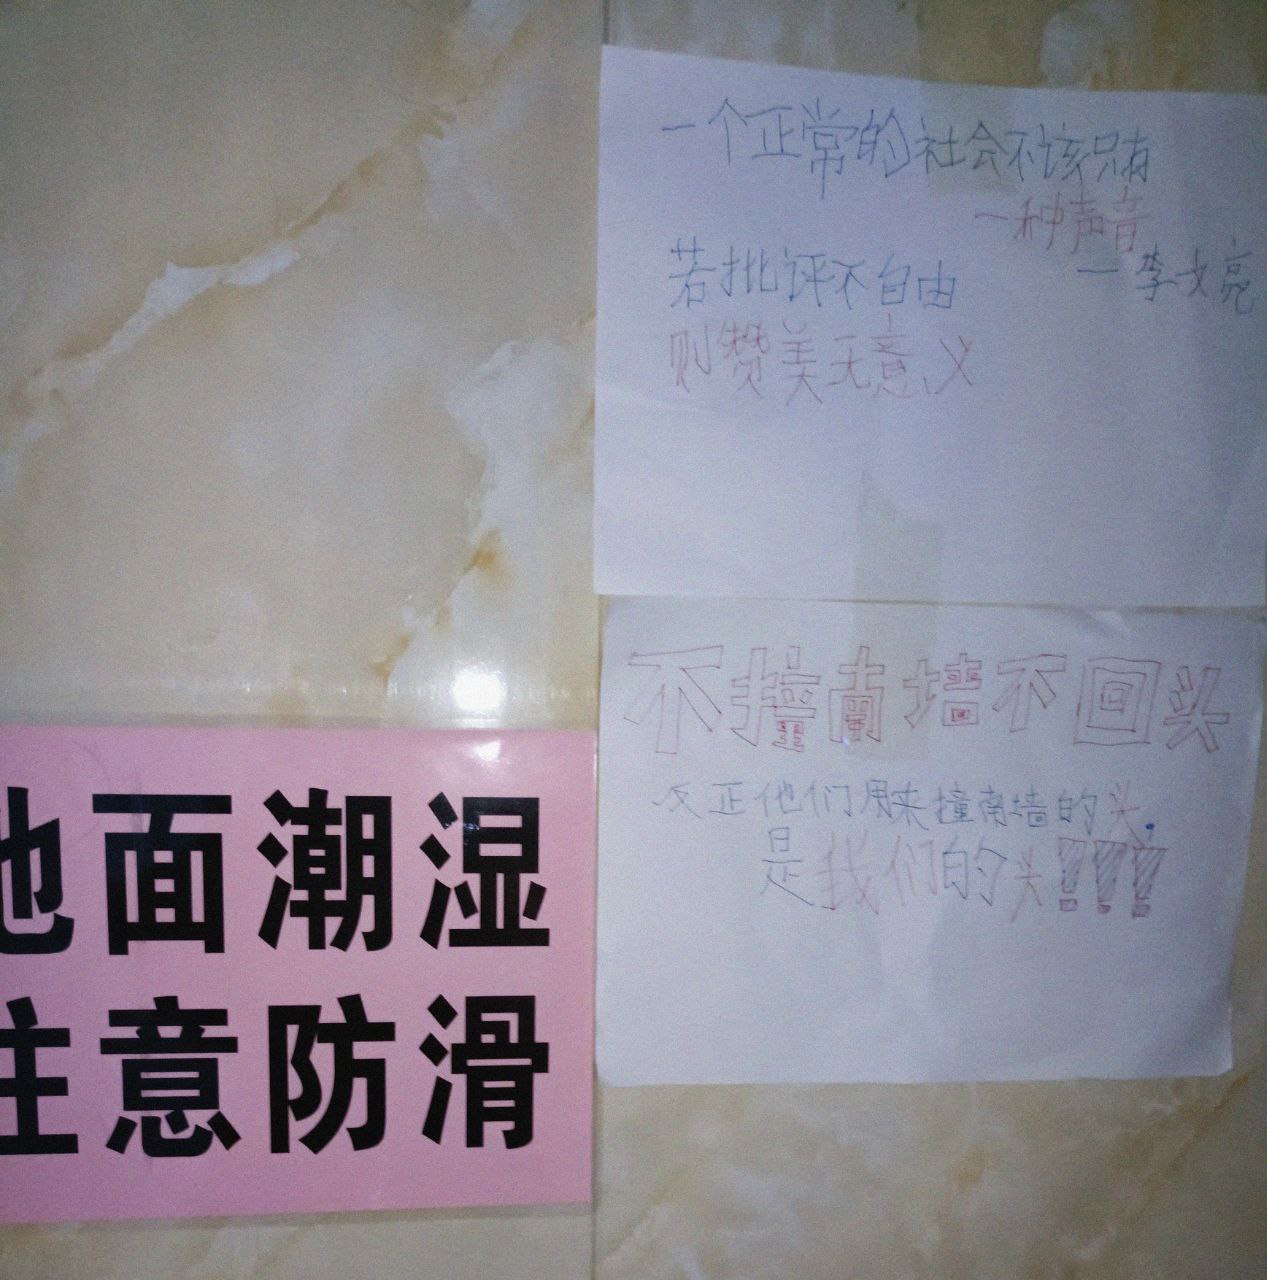 一个正常的社会不该只有
一种声音
—李文亮
若批评不自由
则赞美无意义
不撞南墙不回头
反正他们用来撞南墙的头,
是我们的头!!!
地面潮湿
注意防滑